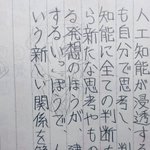 人工知能が浸透する
も自分で思考し、判
知能に全ての判断
ら新たな思考やもの
る発想のほうが、
するいっぽうで、
いう新しい関係を